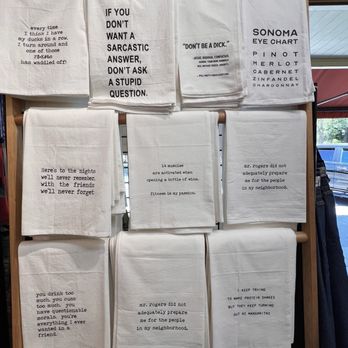 every time
I think I have
my ducks in a row.
I turn around and
one of those
has waddled off!
IF YOU
DON'T
WANT A
SARCASTIC
ANSWER,
DON'T ASK
A STUPID
QUESTION.
"DON'T BE A DICK."
SONOMA
EYE CHART
PINOT
MERLOT
CABERNET
ZINFANDEL
CHARDONNAY
Here's to the nights
we'll never remember,
with the friends
we'll never forget
14 muscles
are activated when
opening a bottle of wine.
fitness is my passion.
mr. Rogers did not
adequately prepare
me for the people
in my neighborhood.
you drink too
much, you cuss
too much, you
have questionable
morals. you're
everything I ever
wanted in a
friend.
mr. Rogers did not
adequately prepare
me for the people
in my neighborhood.
I KEEP TRYING
TO MAKE PROTEIN SHAKES
BUT THEY KEEP TURNING
OUT AS MARGARITAS